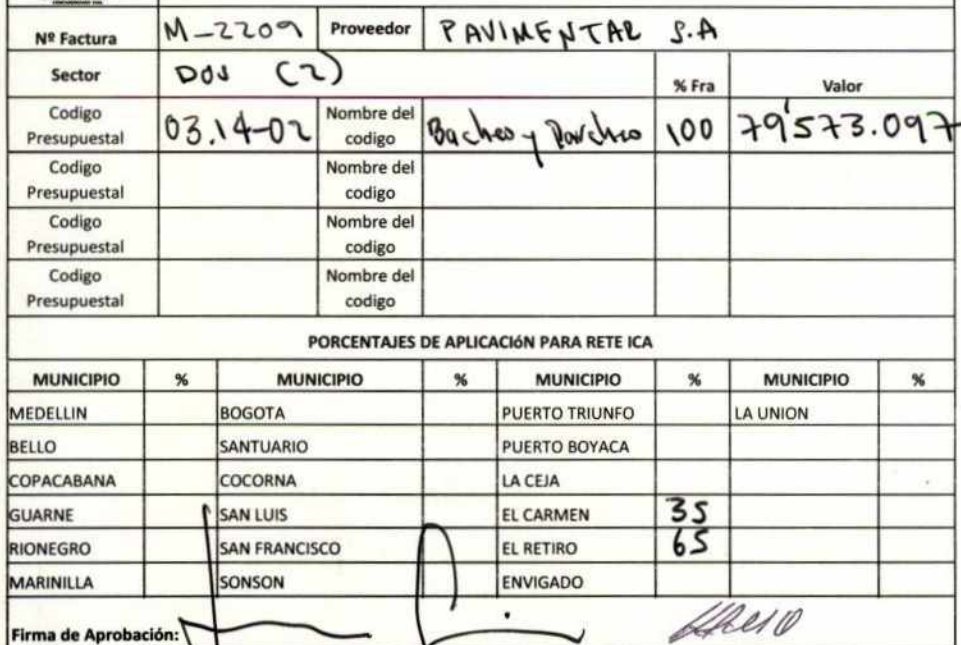 Nº Factura M-2209 Proveedor PAVIMENTAR S.A
Sector DOS (2) % Fra Valor
Codigo Presupuestal 03.14-02 Nombre del codigo Bacheo y Parcheo 100 79'573.097
Codigo Presupuestal Nombre del codigo
Codigo Presupuestal Nombre del codigo
Codigo Presupuestal Nombre del codigo
PORCENTAJES DE APLICACIÓN PARA RETE ICA
MUNICIPIO % MUNICIPIO % MUNICIPIO % MUNICIPIO %
MEDELLIN BOGOTA PUERTO TRIUNFO LA UNION
BELLO SANTUARIO PUERTO BOYACA
COPACABANA COCORNA LA CEJA
GUARNE SAN LUIS EL CARMEN 35
RIONEGRO SAN FRANCISCO EL RETIRO 65
MARINILLA SONSON ENVIGADO
Firma de Aprobación: